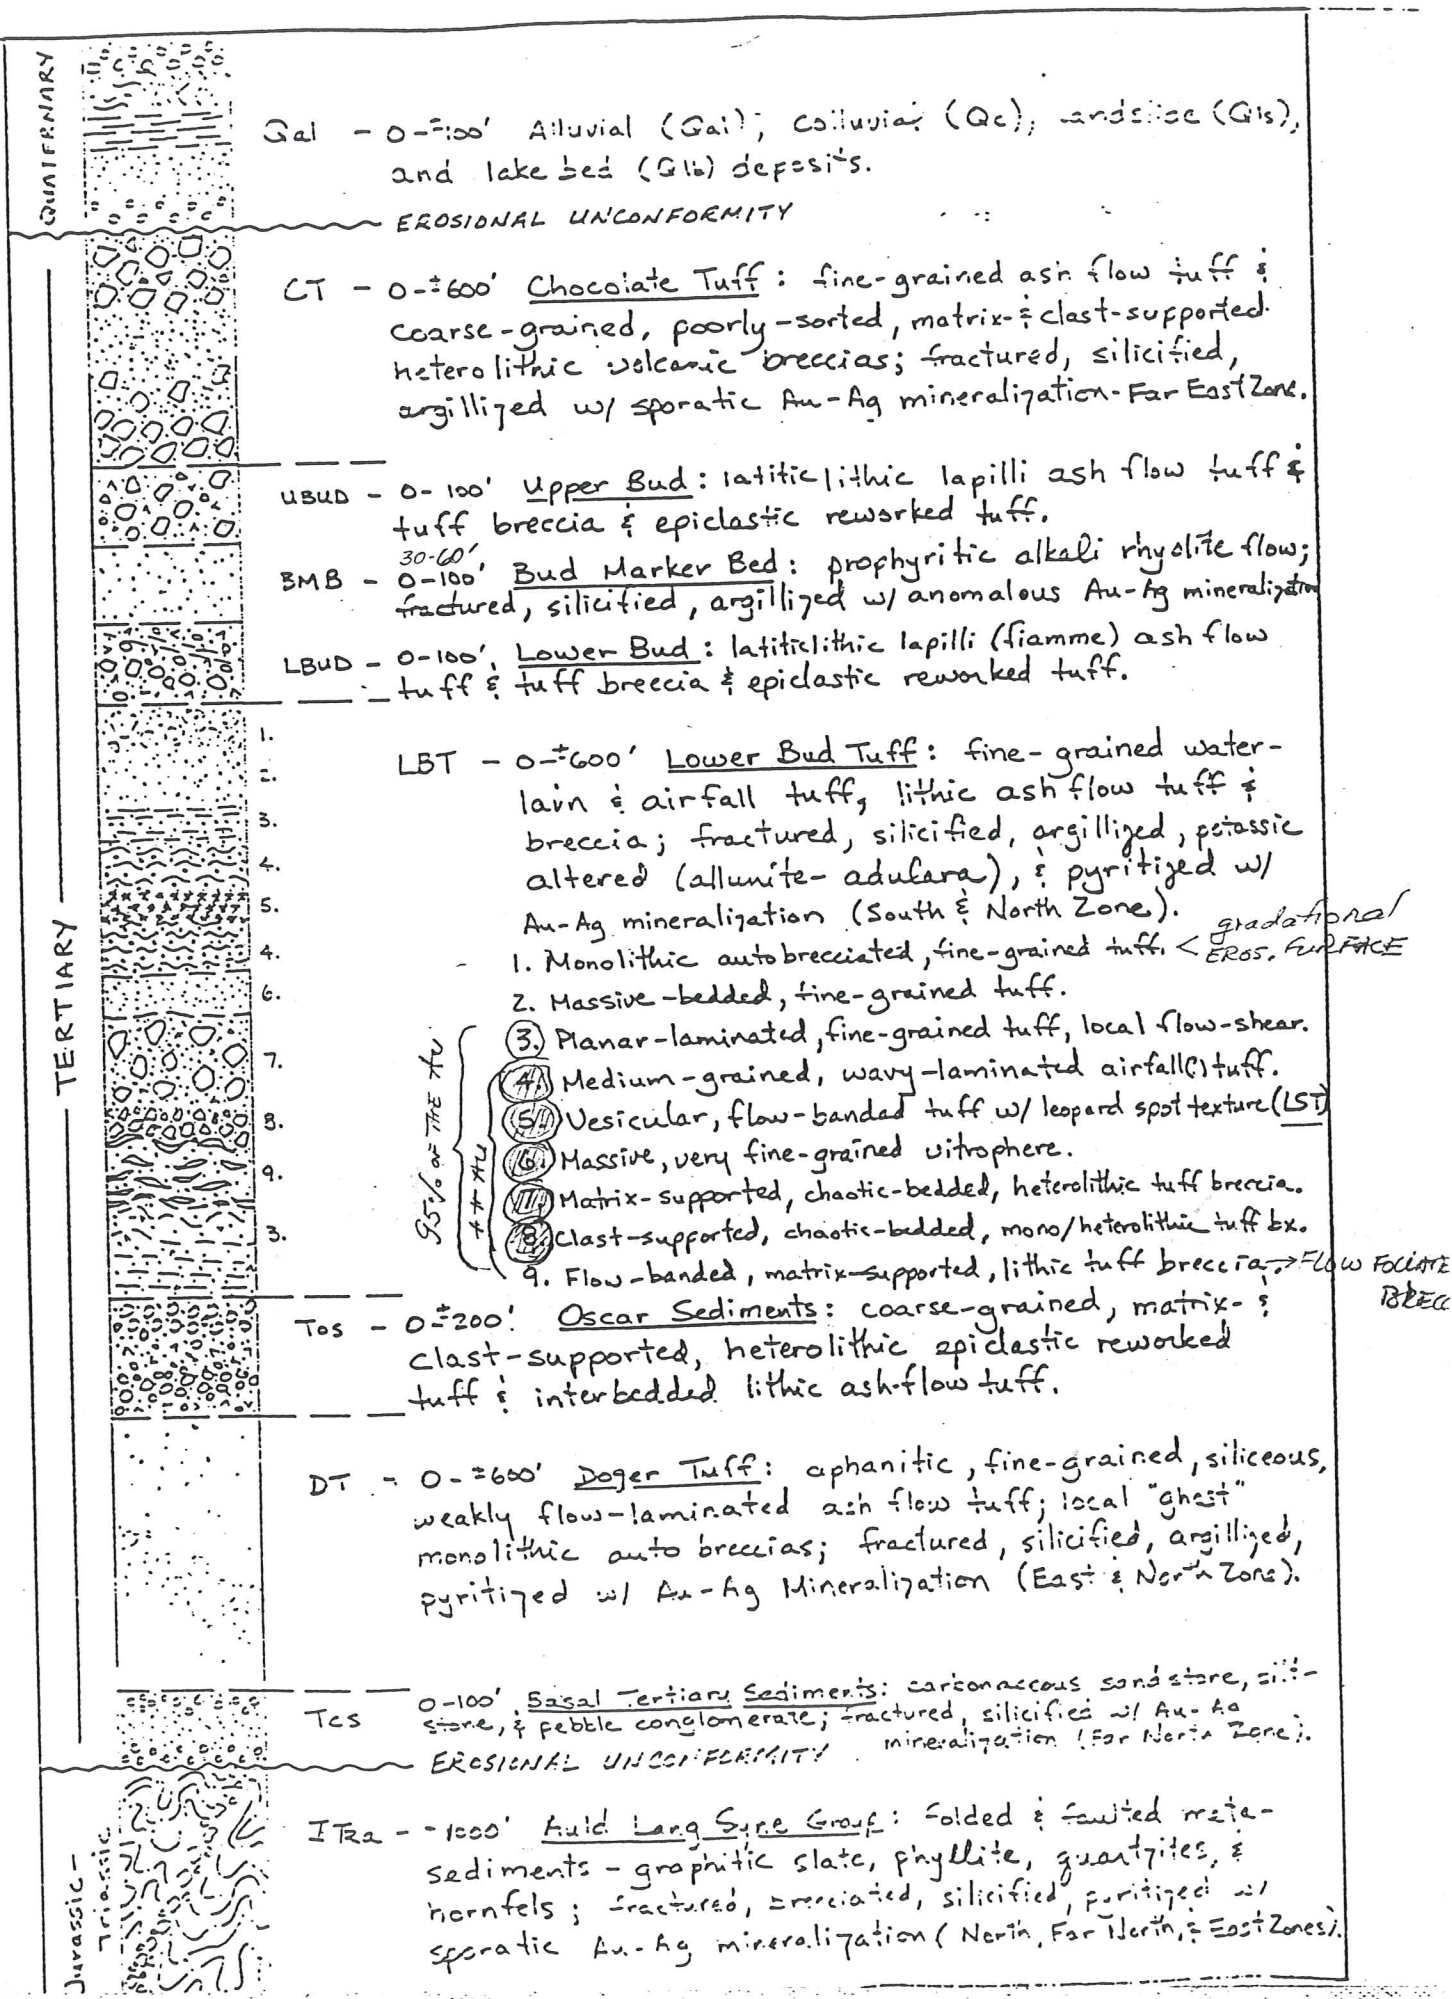 QUATERNARY
Qal - 0-±100' Alluvial (Qal), Colluvial (Qc), landslide (Qls),
and lake bed (Qlb) deposits.
EROSIONAL UNCONFORMITY
CT - 0-±600' Chocolate Tuff: fine-grained ash flow tuff &
coarse-grained, poorly-sorted, matrix- & clast-supported
heterolithic volcanic breccias; fractured, silicified,
argillized w/ sporatic Au-Ag mineralization-Far East Zone.
UBUD - 0-100' Upper Bud: latiticlithic lapilli ash flow tuff &
tuff breccia & epiclastic reworked tuff.
30-60'
BMB - 0-100' Bud Marker Bed: prophyritic alkali rhyolite flow;
fractured, silicified, argillized w/ anomalous Au-Ag mineralization
LBUD - 0-100', Lower Bud: latiticlithic lapilli (fiamme) ash flow
tuff & tuff breccia & epiclastic reworked tuff.
TERTIARY
1.
2.
3.
4.
5.
4.
6.
7.
8.
9.
3.
LBT - 0-±600' Lower Bud Tuff: fine-grained water-
lain & airfall tuff, lithic ash flow tuff &
breccia; fractured, silicified, argillized, potassic
altered (allunite-adulara), & pyritized w/
Au-Ag mineralization (South & North Zone).
1. Monolithic autobrecciated, fine-grained tuff. < gradational
EROS. SURFACE
2. Massive-bedded, fine-grained tuff.
95% OF THE AU
3. Planar-laminated, fine-grained tuff, local flow-shear.
4. Medium-grained, wavy-laminated airfall(?) tuff.
5. Vesicular, flow-banded tuff w/ leopard spot texture (LST)
6. Massive, very fine-grained vitrophere.
7. Matrix-supported, chaotic-bedded, heterolithic tuff breccia.
8. Clast-supported, chaotic-bedded, mono/heterolithic tuff bx.
9. Flow-banded, matrix-supported, lithic tuff breccia. → FLOW FOLIATE
BRECC
Tos - 0-±200'. Oscar Sediments: coarse-grained, matrix- &
clast-supported, heterolithic epiclastic reworked
tuff & interbedded lithic ash-flow tuff.
DT - 0-±600' Dozer Tuff: aphanitic, fine-grained, siliceous,
weakly flow-laminated ash flow tuff; local "ghost"
monolithic auto breccias; fractured, silicified, argillized,
pyritized w/ Au-Ag Mineralization (East & North Zone).
Tcs 0-100' Basal Tertiary Sediments: carbonaceous sandstone, silt-
stone, & pebble conglomerate; fractured, silicified w/ Au-Ag
mineralization (Far North Zone).
EROSIONAL UNCONFORMITY
Jurassic-
Triassic
- 1000' Auld Lang Syne Group: Folded & faulted meta-
sediments - graphitic slate, phyllite, quartzites, &
hornfels; fractured, brecciated, silicified, pyritized w/
sporatic Au-Ag mineralization (North, Far North, & East Zones).